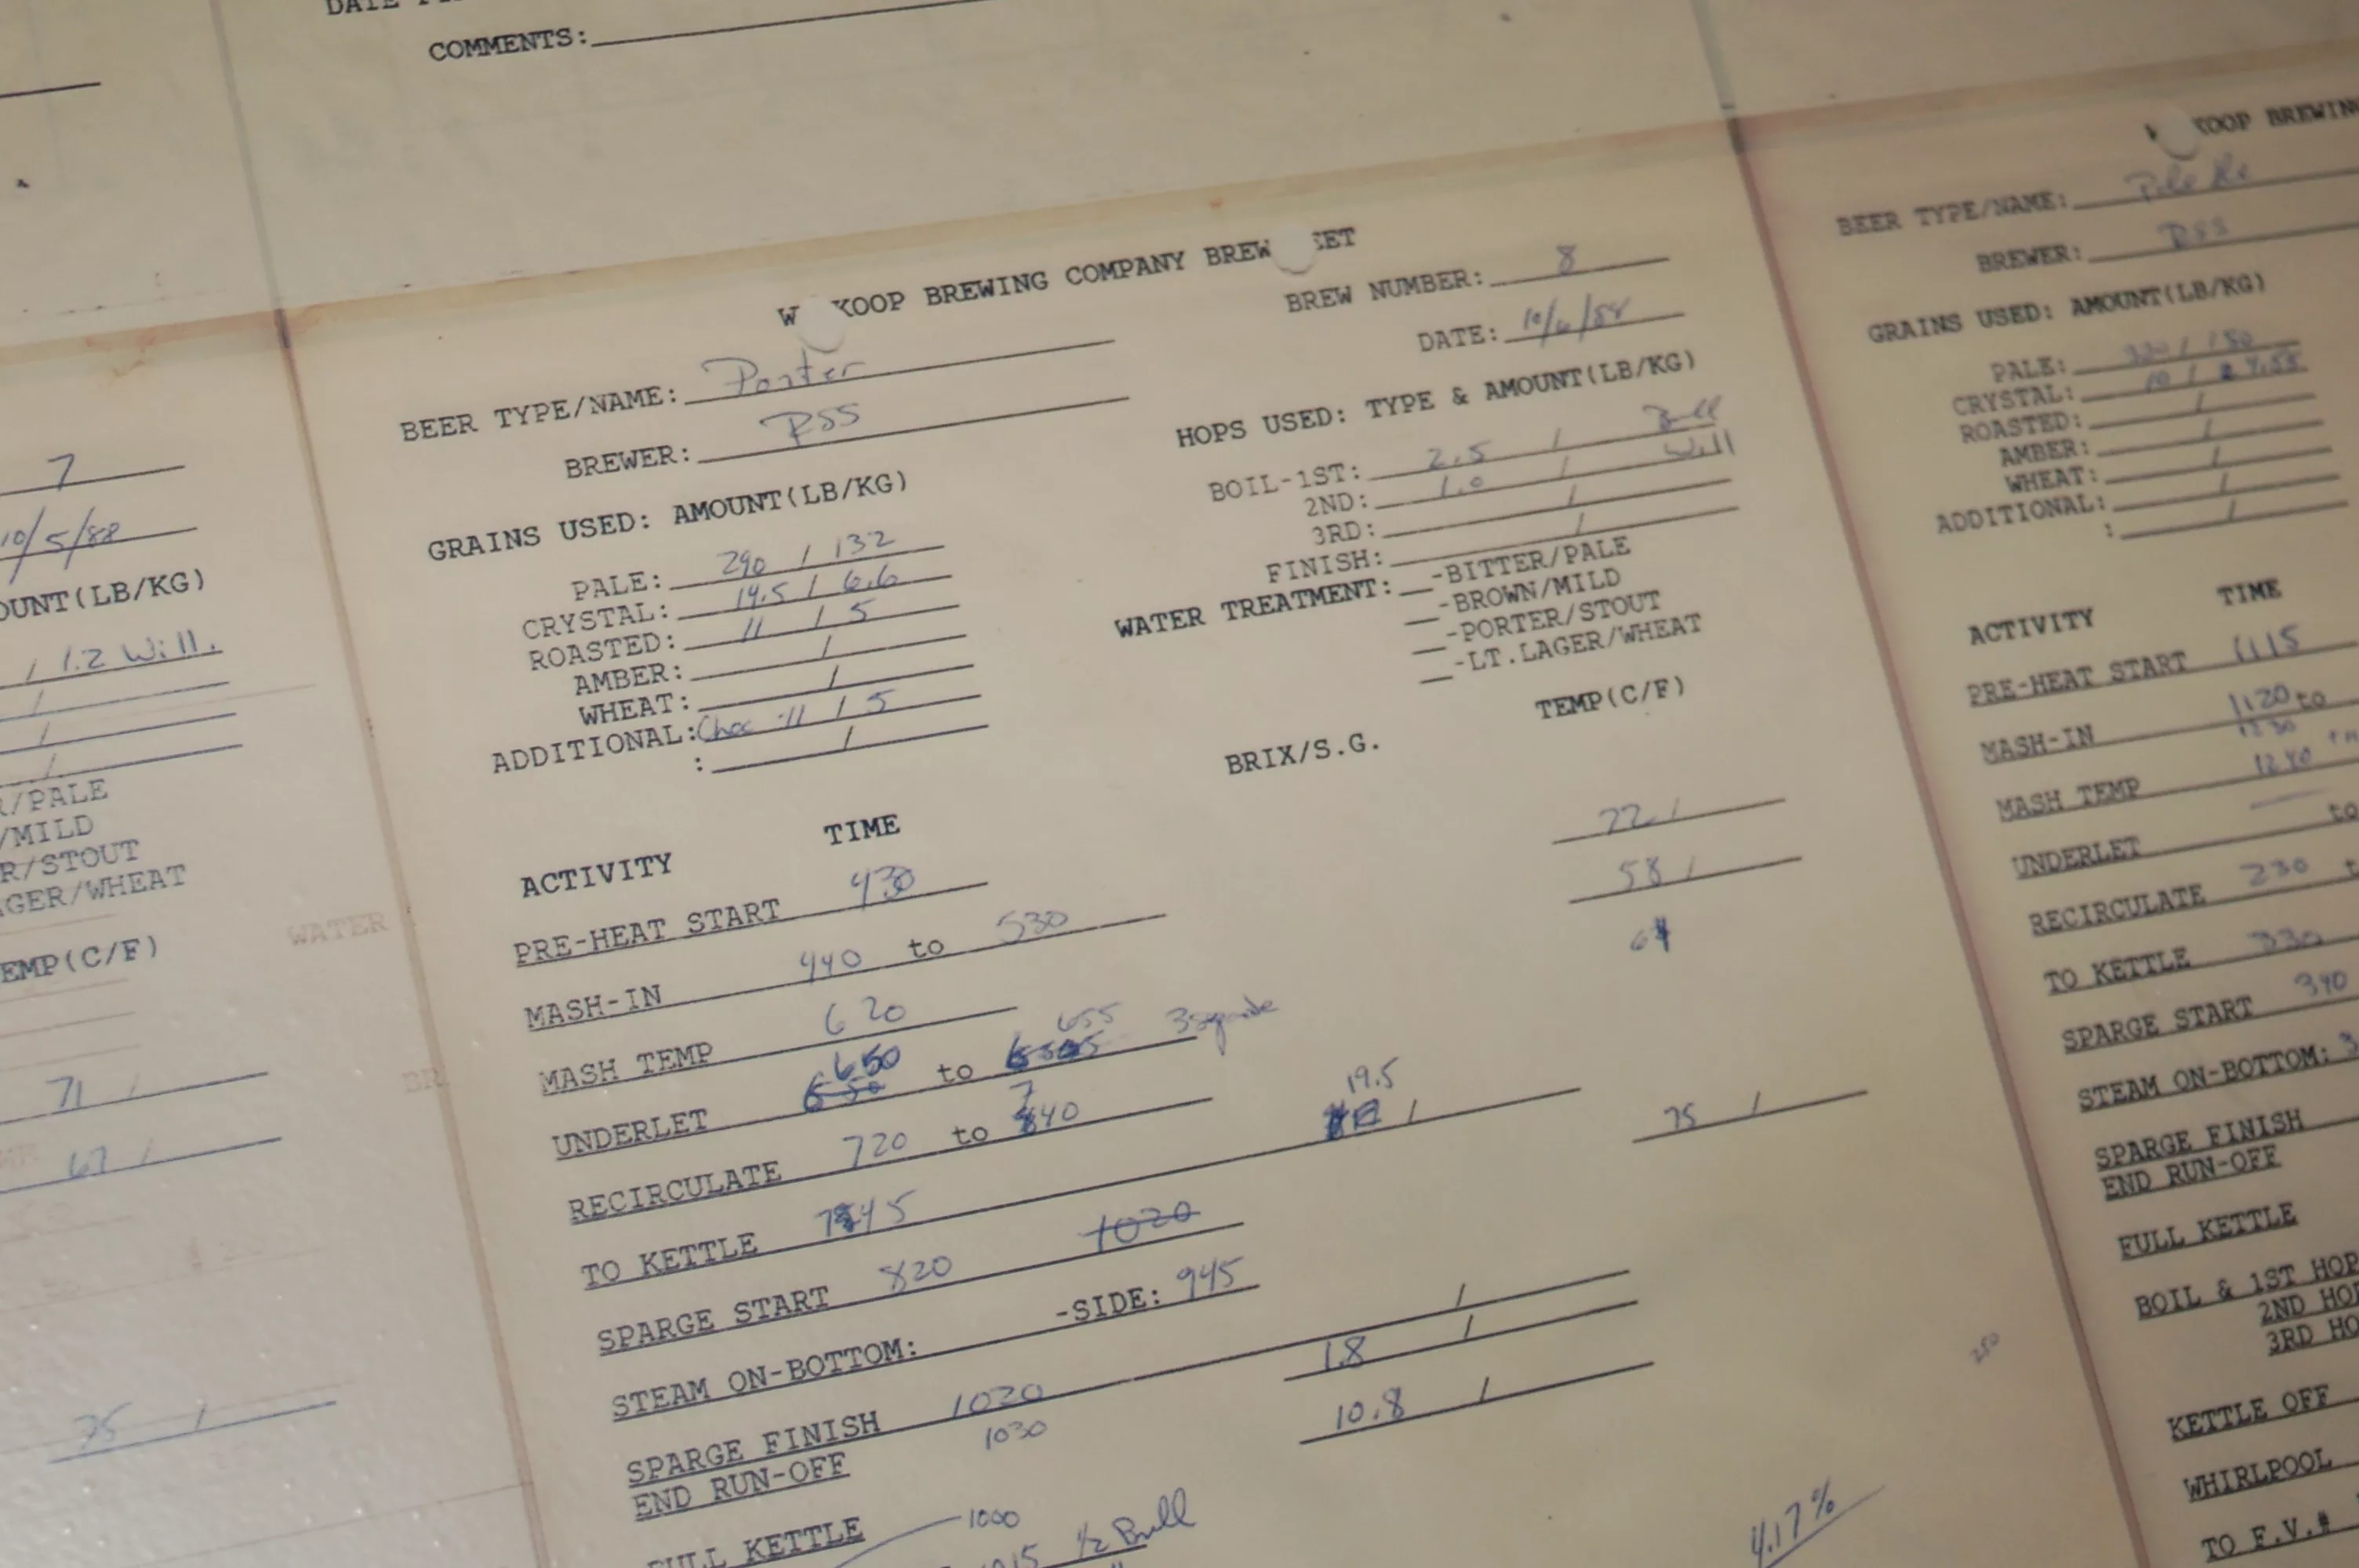 COMMENTS:
KOOP BREWING COMPANY BREW
BEER TYPE/NAME: Porter
BREW NUMBER: 8
BREWER: RSS
DATE: 10/6/88
GRAINS USED: AMOUNT(LB/KG)
HOPS USED: TYPE & AMOUNT(LB/KG)
PALE: 290 / 132
BOIL-1ST: 2.5 / Bull
CRYSTAL: 14.5 / 6.6
2ND: 1.0 / Will
ROASTED: 11 / 5
3RD: /
AMBER: /
FINISH: /
WHEAT: /
WATER TREATMENT: -BITTER/PALE
ADDITIONAL: Choc 11 / 5
-BROWN/MILD
: /
-PORTER/STOUT
-LT.LAGER/WHEAT
ACTIVITY TIME BRIX/S.G. TEMP(C/F)
PRE-HEAT START 430 /
MASH-IN 440 to 530 58 /
MASH TEMP 620
UNDERLET 650 to 655
RECIRCULATE 720 to 740
TO KETTLE 745 19.5 / 75 /
SPARGE START 820 1020
STEAM ON-BOTTOM: -SIDE: 945
SPARGE FINISH 1020 /
END RUN-OFF 1030 1.8 /
KETTLE 1000 10.8 /
1/2 Bull
4.17%
7
10/5/88
(LB/KG)
/ 1.2 Will.
/
/
/
/PALE
/MILD
/STOUT
/WHEAT
(C/F)
71 /
67 /
75 /
WATER
KOOP BREWING
BEER TYPE/NAME: Pale
BREWER: RSS
GRAINS USED: AMOUNT(LB/KG)
PALE: 330 / 150
CRYSTAL: 10 / 4.55
ROASTED: /
AMBER: /
WHEAT: /
ADDITIONAL: /
: /
ACTIVITY TIME
PRE-HEAT START 1115
MASH-IN 1120 to
1230
MASH TEMP 1240
UNDERLET to
RECIRCULATE 230
TO KETTLE 330
SPARGE START 340
STEAM ON-BOTTOM:
SPARGE FINISH
END RUN-OFF
FULL KETTLE
BOIL & 1ST HOP
2ND
3RD
250
KETTLE OFF
WHIRLPOOL
TO F.V.#